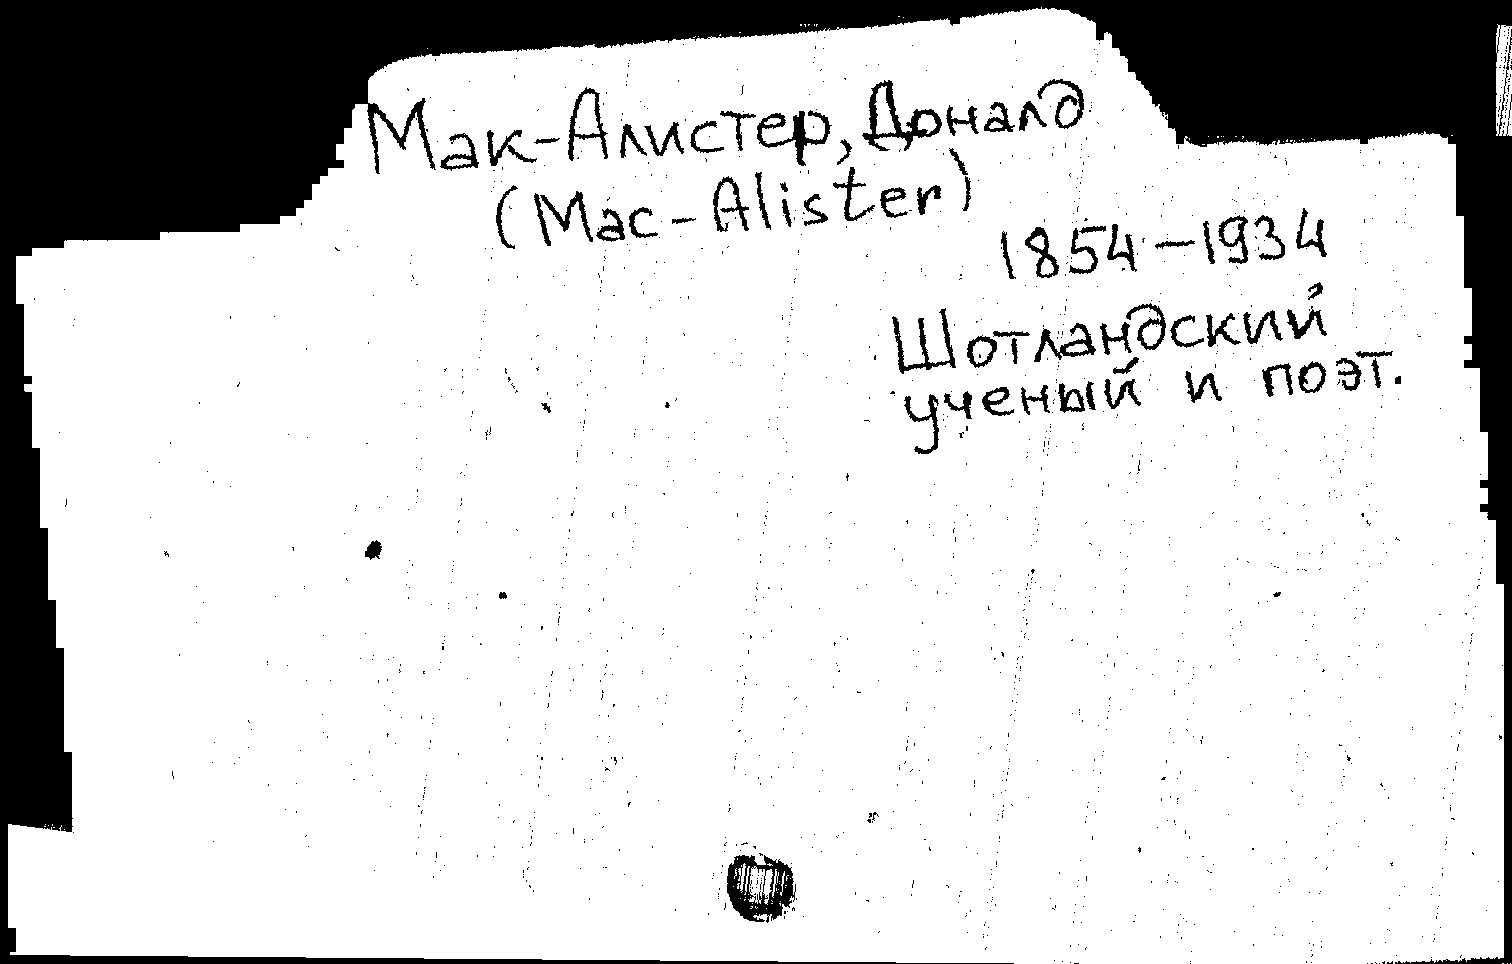 Мак-Алистер, Доналд
(Mac-Alister)
1854-1934
Шотландский
ученый и поэт.